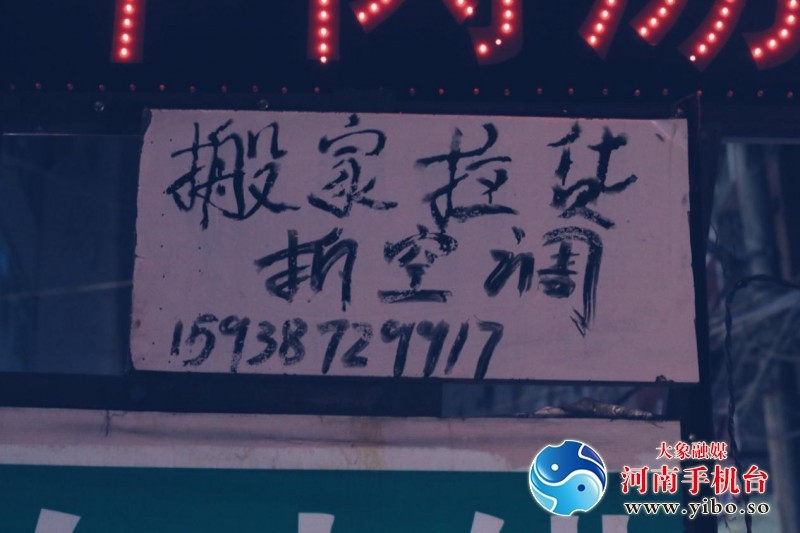 搬家拉货
拆空调
15938729917
大象融媒
河南手机台
www.yibo.so